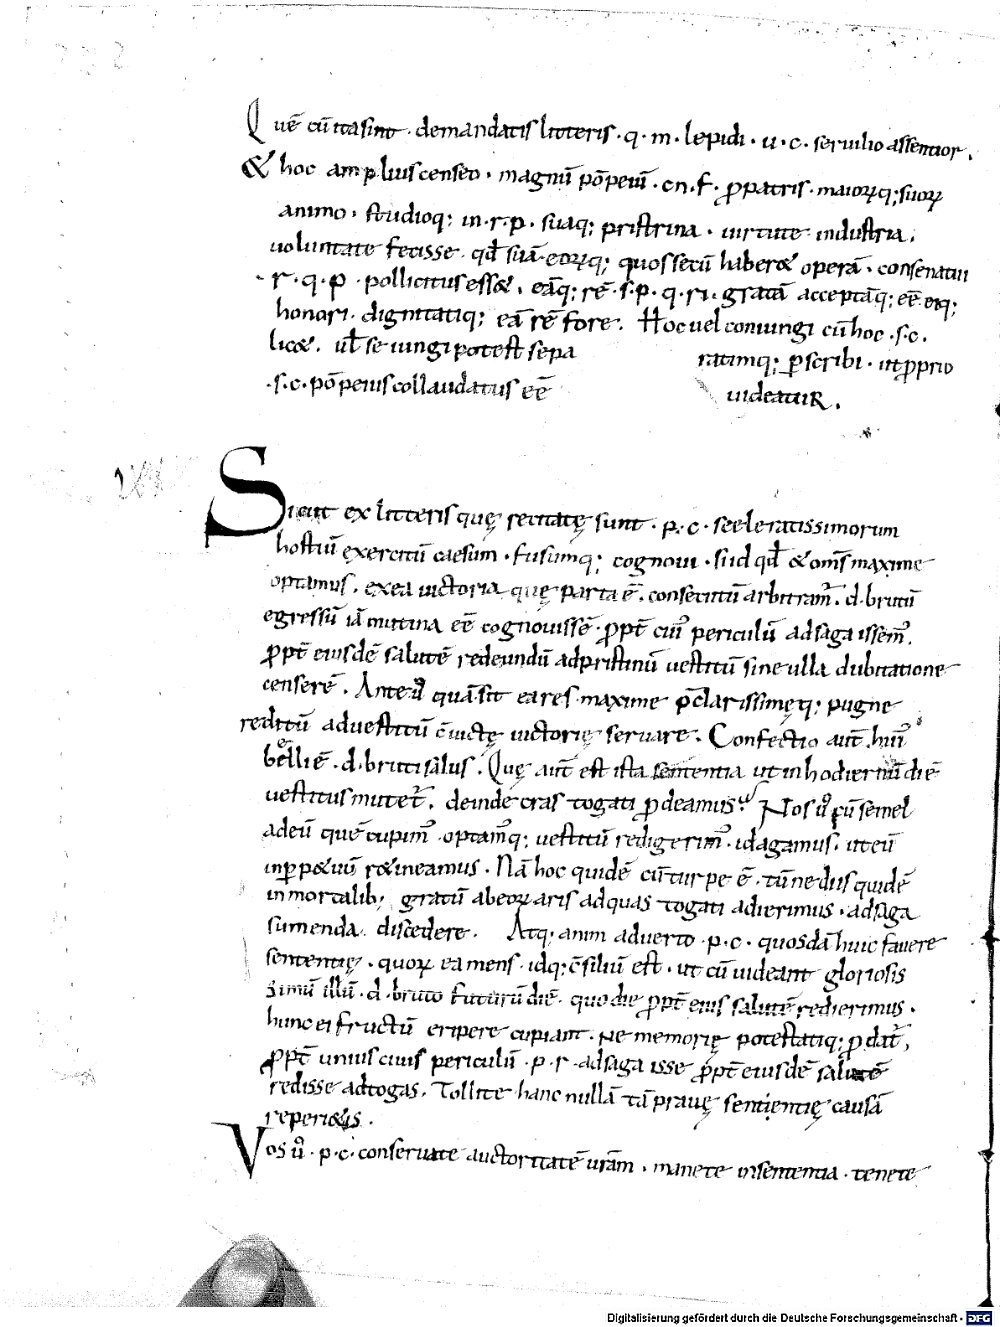 Quę cū ita sint · de mandatis litteris · q · m · lepidi · u · c · seruilio assentior ·
& hoc amplius censeo · magnū pōpeiū · cn · f · ꝓ patris · maiorꝝq; suorꝝ
animo · studioq; in · r · p · suaq; pristrina · uirtute industria ·
uoluntate fecisse · qđ suā eorꝝq; quos secū haber& operā · consenatui
r · q · p · pollicitus ess& · eāq; rē · s · p · q · r · gratā acceptāq; eē eiq;
honori · dignitatiq; eā rē fore · Hoc uel coniungi cū hoc · s · c ·
lic& · uł seiungi potest sepa ratimq; ꝑscribi · ut ꝓprio
· s · c · pōpeius collaudatus eē uideatuR ·
Sicut ex litteris quę recitatę sunt · p · c · sceleratissimorum
hostiū exercitū caesum · fusumq; cognoui · sic id qđ & om̄s maxime
optamus · ex ea uictoria quę parta ē · consecutū arbitram̄ · d · brutū
egressū iā mutina eē cognouissē · ꝓpt̄ cui᾽ periculū ad saga issem᾽ ·
ꝓpt̄ eiusdē salutē redeundū ad pristinū uestitū sine ulla dubitatione
censerē · Ante ū quā sit ea res maxime p̄clarissimęq; pugne
reditū ad uestitū c̄iuctę uictorię seruare · Confectio aut̄ hui᾽
belli ē · d · bruti salus · Quę aut̄ est ista sententia ut in hodiernū diē
uestitus mutet̄ · deinde cras togati ꝓdeamus · Nos ū cū semel
ad eū quē cupim᾽ · optam᾽q; uestitū redigerim᾽ · id agamus · ut eū
in ꝑp&uū r&ineamus · Nā hoc quidē cū turpe ē · tū ne diis quidē
inmortalib; gratū ab eorꝝ aris ad quas togati adierimus · ad saga
sumenda discedere · Atq; anim aduerto · p · c · quosdā huic fauere
sententię · quorꝝ ea mens · idq; c̄siliū est · ut cū uideant gloriosis
simū illū · d · bruto futurū diē · quo die ꝓpt̄ eius salutē redierimus ·
hunc ei fructū eripere cupiant · Ne memorię potestatiq; ꝓdat̄ ·
ꝓpt̄ unius ciuis periculū · p · r · ad saga isse ꝓpt̄ eiusdē salutē
redisse ad togas · Tollite hanc nullā tā prauę sententię causā
reperi&is ·
Vos ū · p · c · conseruate auctoritatē urām · manete in sententia · tenete
Digitalisierung gefördert durch die Deutsche Forschungsgemeinschaft · DFG